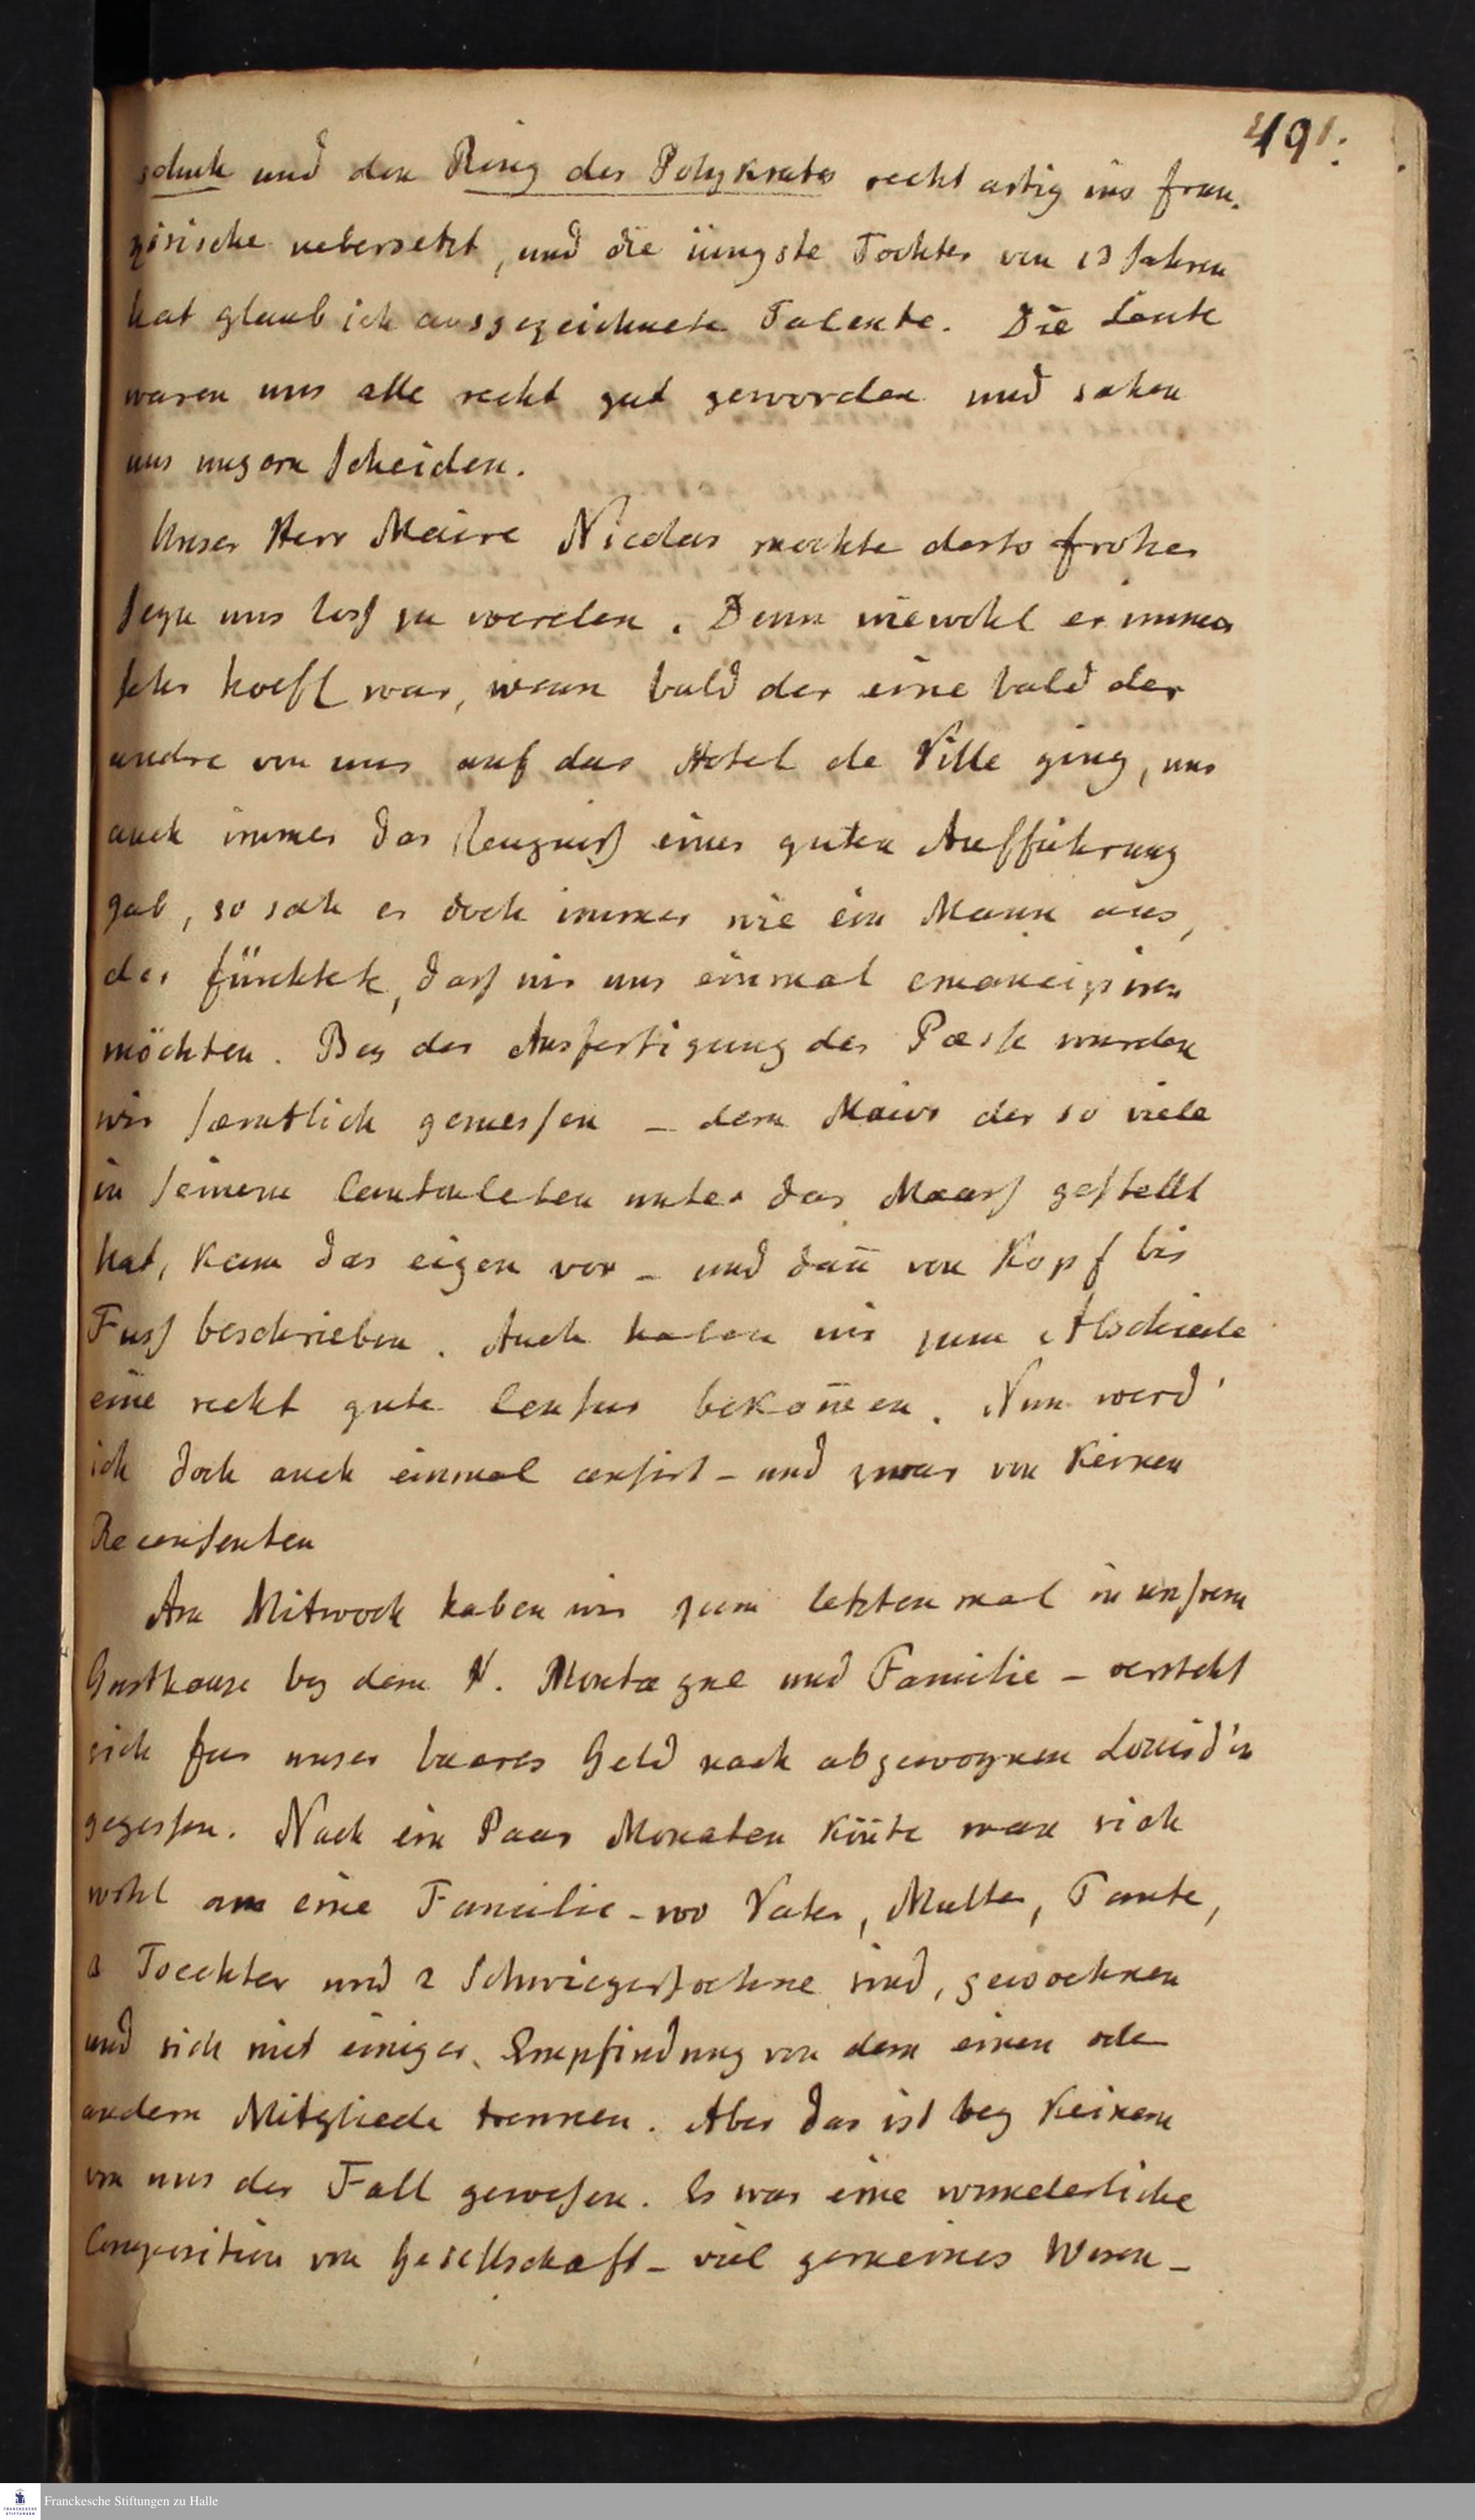 491.
schuh und den Ring des Polykrates recht artig ins fran-
zösische uebersetzt, und die iüngste Tochter von 13 Jahren
hat glaub ich ausgezeichnete Talente. Die Leute
waren uns alle recht gut geworden und sahen
uns ungern scheiden.
Unser Herr Maire Nicolas mochte desto froher
seyn uns loss zu werden. Denn wiewohl er immer
sehr hoefl war, wenn bald der eine bald der
andre von uns auf das Hotel de Ville ging, uns
auch immer das Zeugniss einer guten Aufführung
gab, so sah er doch immer wie ein Mann aus,
der fürchtete, dass wir uns einmal emancipiren
möchten. Bey der Ausfertigung der Pæsse wurden
wir sæmtlich gemessen – dem Maire der so viele
in seinem Leben unter das Maass gestellt
hat, kam das eigen vor – und dañ von Kopf bis
Fuss beschrieben. Auch haben wir zum Abschiede
eine recht gute Censur bekom̄en. Nun werd'
ich doch auch einmal censirt – und zwar von keinen
Recensenten
Am Mitwoch haben wir zum letzten mal in unsrem
Gasthause bey dem H. Montagne und Familie – versteht
sich fur unser baares Geld nach abgewognen Louisd'or
gegessen. Nach ein Paar Monaten köñte man sich
wohl an eine Familie – wo Vater, Mutter, Tante,
3 Toechter und 2 Schwiegersoehne sind, gewoehnen
und sich mit einiger Empfindung von dem einen oder
andern Mitgliede trennen. Aber das ist bey keinem
von uns der Fall gewesen. Es war eine wunderliche
Composition von Gesellschaft – viel gemeines Wesen –
Franckesche Stiftungen zu Halle